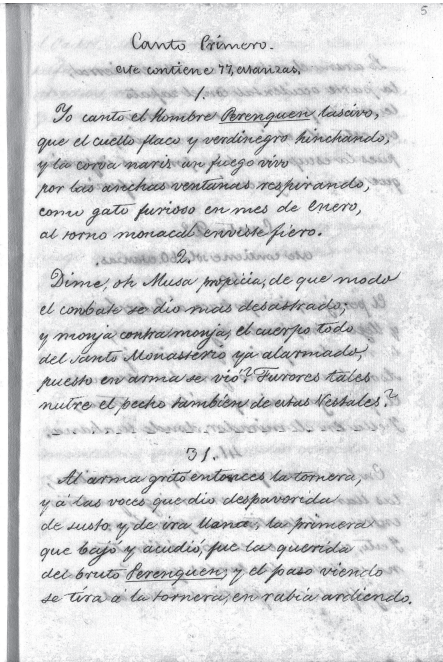 5
Canto Primero.
este contiene 77, estanzas.
1.
Yo canto el hombre Perenquen lascivo,
que el cuello flaco y verdinegro hinchando,
y la corva naris un fuego vivo
por las anchas ventanas respirando,
como gato furioso en mes de Enero,
al torno monacal enviste fiero.
2.
Dime, oh Musa propicia, de que modo
el conbate se dio mas desastrado;
y monja contra monja, el cuerpo todo
del Santo Monasterio ya alarmado,
puesto en arma se vió? Furores tales
nutre el pecho tambien de estas Vestales?
31.
Al arma gritó entonces la tornera,
y á las voces que dio despavorida
de susto y de ira llena, la primera
que bajó y acudió, fue la querida
del bruto Perenquen, y el paso viendo
se tira á la tornera, en rabia ardiendo.